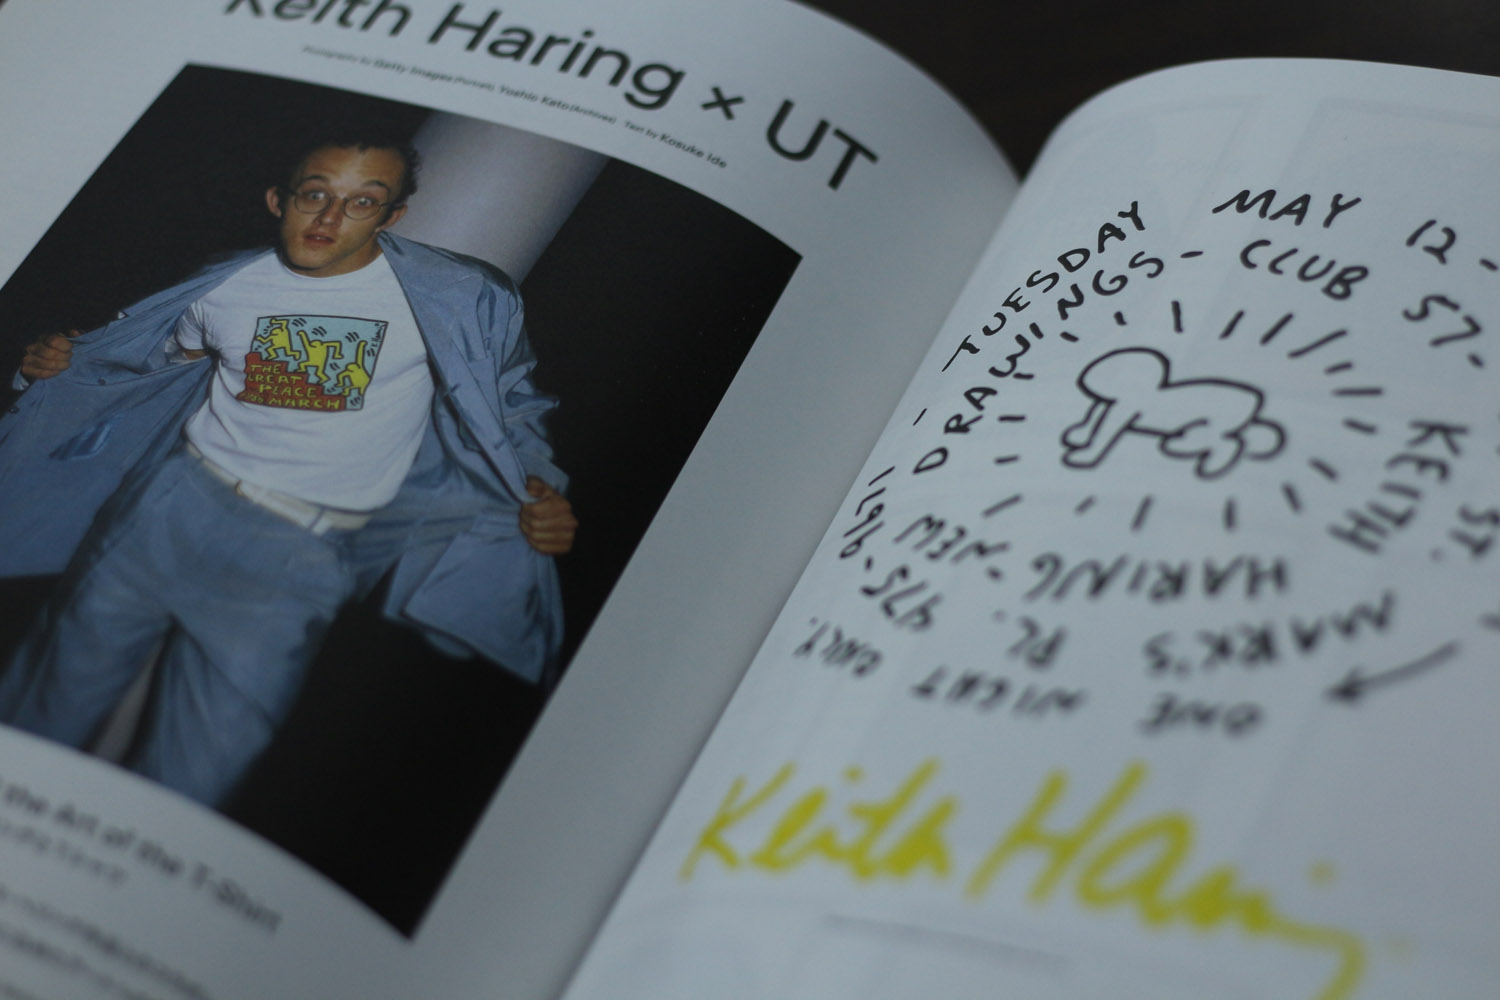 Keith Haring × UT
Photography by Getty Images(Portrait), Yoshio Kato(Archives) Text by Kosuke Ide
THE
GREAT
PLACE
MARCH
the Art of the T-Shirt
TUESDAY MAY 12 -
DRAWINGS - CLUB 57 -
KEITH
HARING - NEW
ST.
MARK'S PL. 475-9671
ONE NIGHT ONLY.
Keith Haring